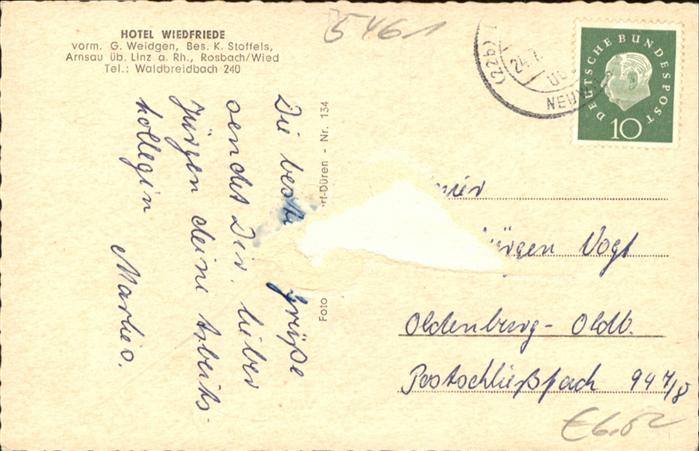 HOTEL WIEDFRIEDE
vorm. G. Weidgen, Bes. K. Stoffels,
Arnsau üb. Linz a. Rh., Rosbach/Wied
Tel.: Waldbreidbach 240
5461
(22b)
24.7.
NEUW
DEUTSCHE BUNDESPOST
10
Die beste Grüße
sendet Dir, lieber
Jürgen deine Arbeits-
kollegin
Marlies.
Foto
rf-Düren - Nr. 134
ürgen Vogt
Oldenburg-Oldb.
Postschließfach 947/8
€6.02